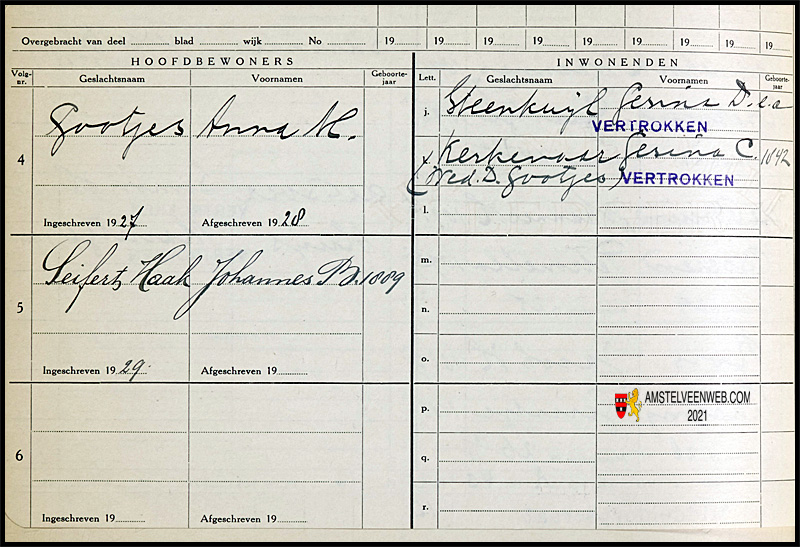 Overgebracht van deel blad wijk No 19 19 19 19 19 19 19 19 19
HOOFDBEWONERS
Volg-nr. Geslachtsnaam Voornamen Geboorte-jaar
4 Gootjes Anna M.
Ingeschreven 1927 Afgeschreven 1928
5 Seifert, Haak Johannes B. 1889
Ingeschreven 1929 Afgeschreven 19
6
Ingeschreven 19 Afgeschreven 19
INWONENDEN
Lett. Geslachtsnaam Voornamen Geboorte-jaar
j. Steenkuyl Gesina D. e.a
VERTROKKEN
k. Kerkenaar Gesina C. 1842
(Wed. D. Gootjes) VERTROKKEN
l.
m.
n.
o.
p.
AMSTELVEENWEB.COM
2021
q.
r.